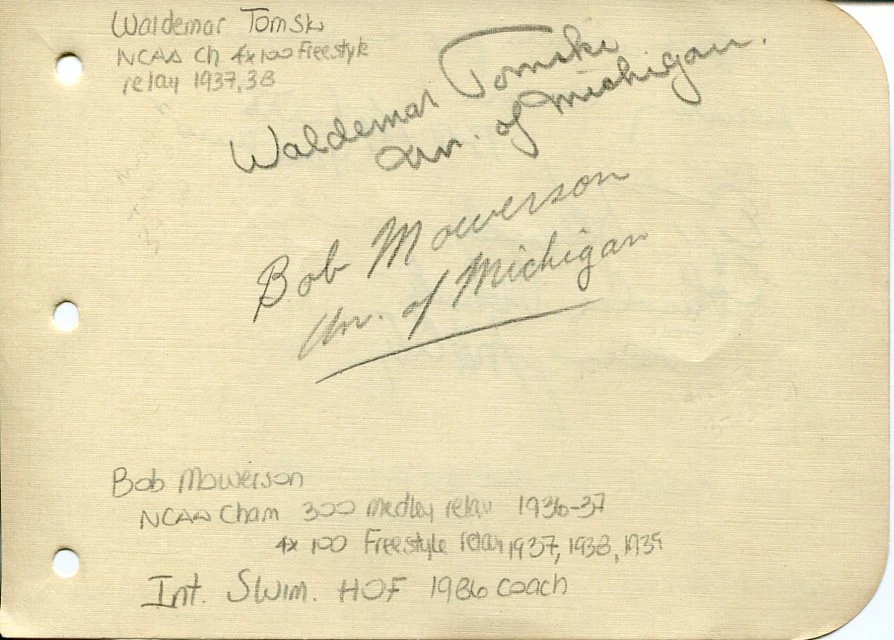 Waldemar Tomski
NCAA Ch 4x100 Freestyle
relay 1937,38
Waldemar Tomski
Un. of Michigan.
Bob Mowerson
Un. of Michigan
Bob Mowerson
NCAA Cham 300 medley relay 1936-37
4x 100 Freestyle relay 1937, 1938, 1939
Int. Swim. HOF 1986 coach